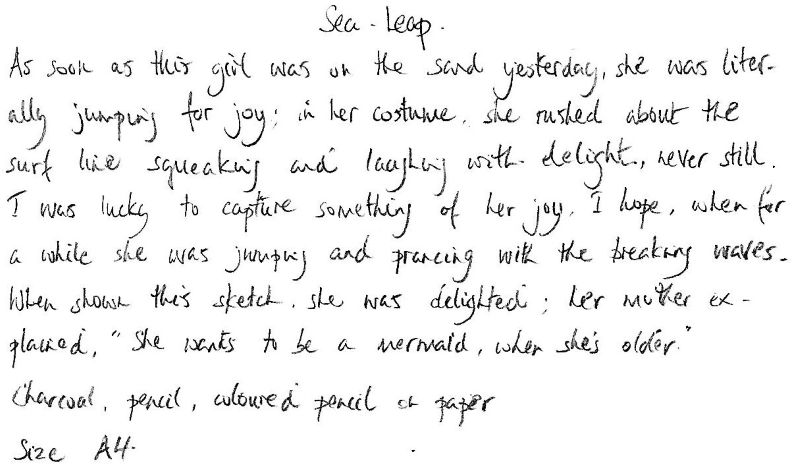 Sea-Leap.
As soon as this girl was on the sand yesterday, she was liter-
ally jumping for joy; in her costume, she rushed about the
surf line squeaking and laughing with delight, never still.
I was lucky to capture something of her joy, I hope, when for
a while she was jumping and prancing with the breaking waves.
When shown this sketch, she was delighted; her mother ex-
plained, "She wants to be a mermaid, when she's older."
Charcoal, pencil, coloured pencil on paper
Size A4.